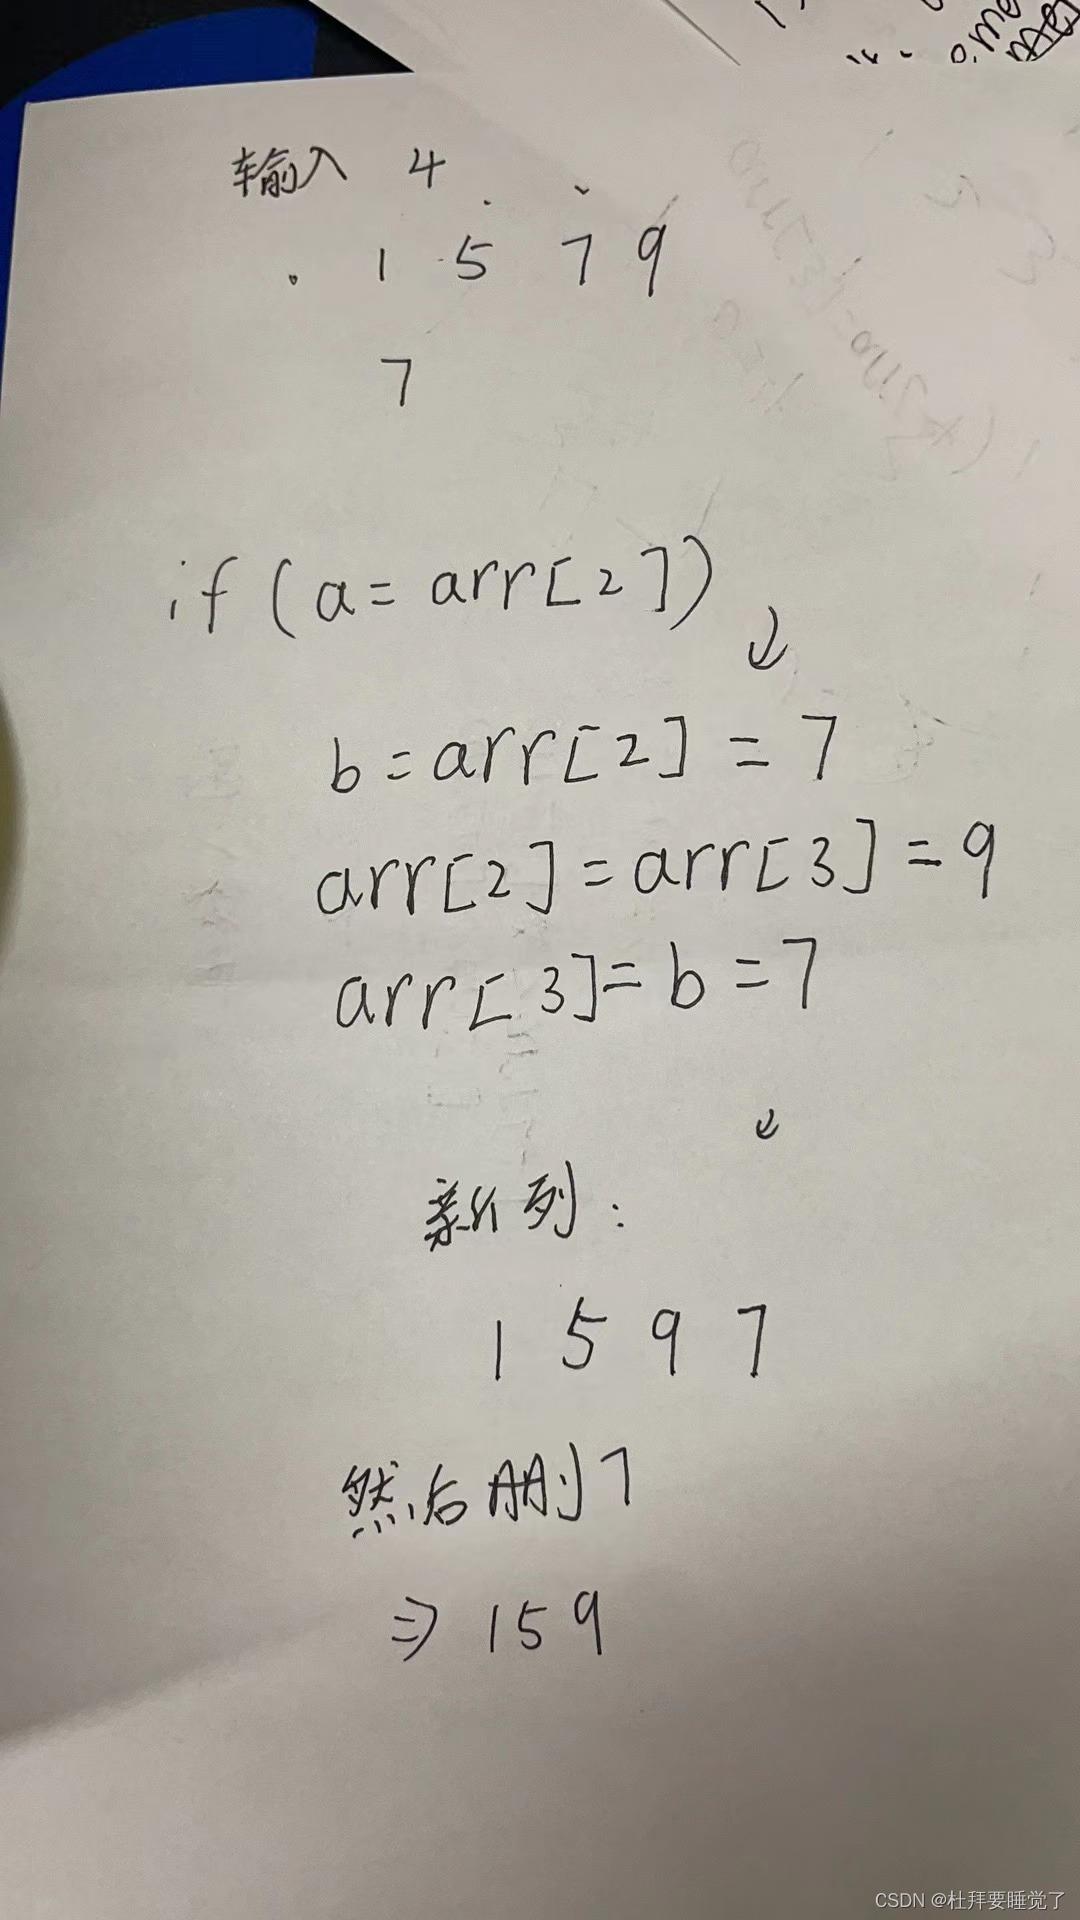 输入 4
1 5 7 9
7
if(a=arr[2])
b=arr[2]=7
arr[2]=arr[3]=9
arr[3]=b=7
新列:
1 5 9 7
然后删7
⇒159
CSDN @杜拜要睡觉了